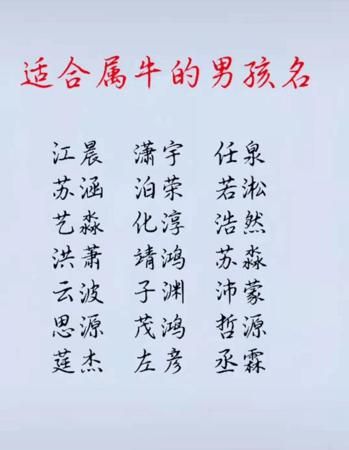 适合属牛的男孩名
江晨 潇宇 任泉
苏涵 泊荣 若淞
艺淼 化淳 浩然
洪萧 靖鸿 苏淼
云波 子渊 沛蒙
思源 茂鸿 哲源
莛杰 左彦 丞霖